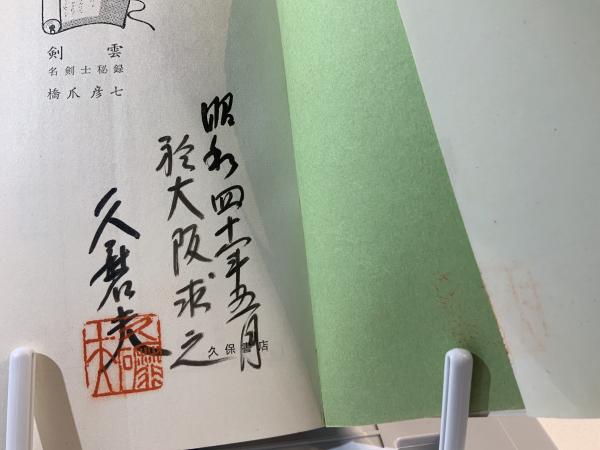 剣雲
名剣士秘録
橋爪彦七
昭和四十一年五月
於大阪求之
久磨夫
久保書店